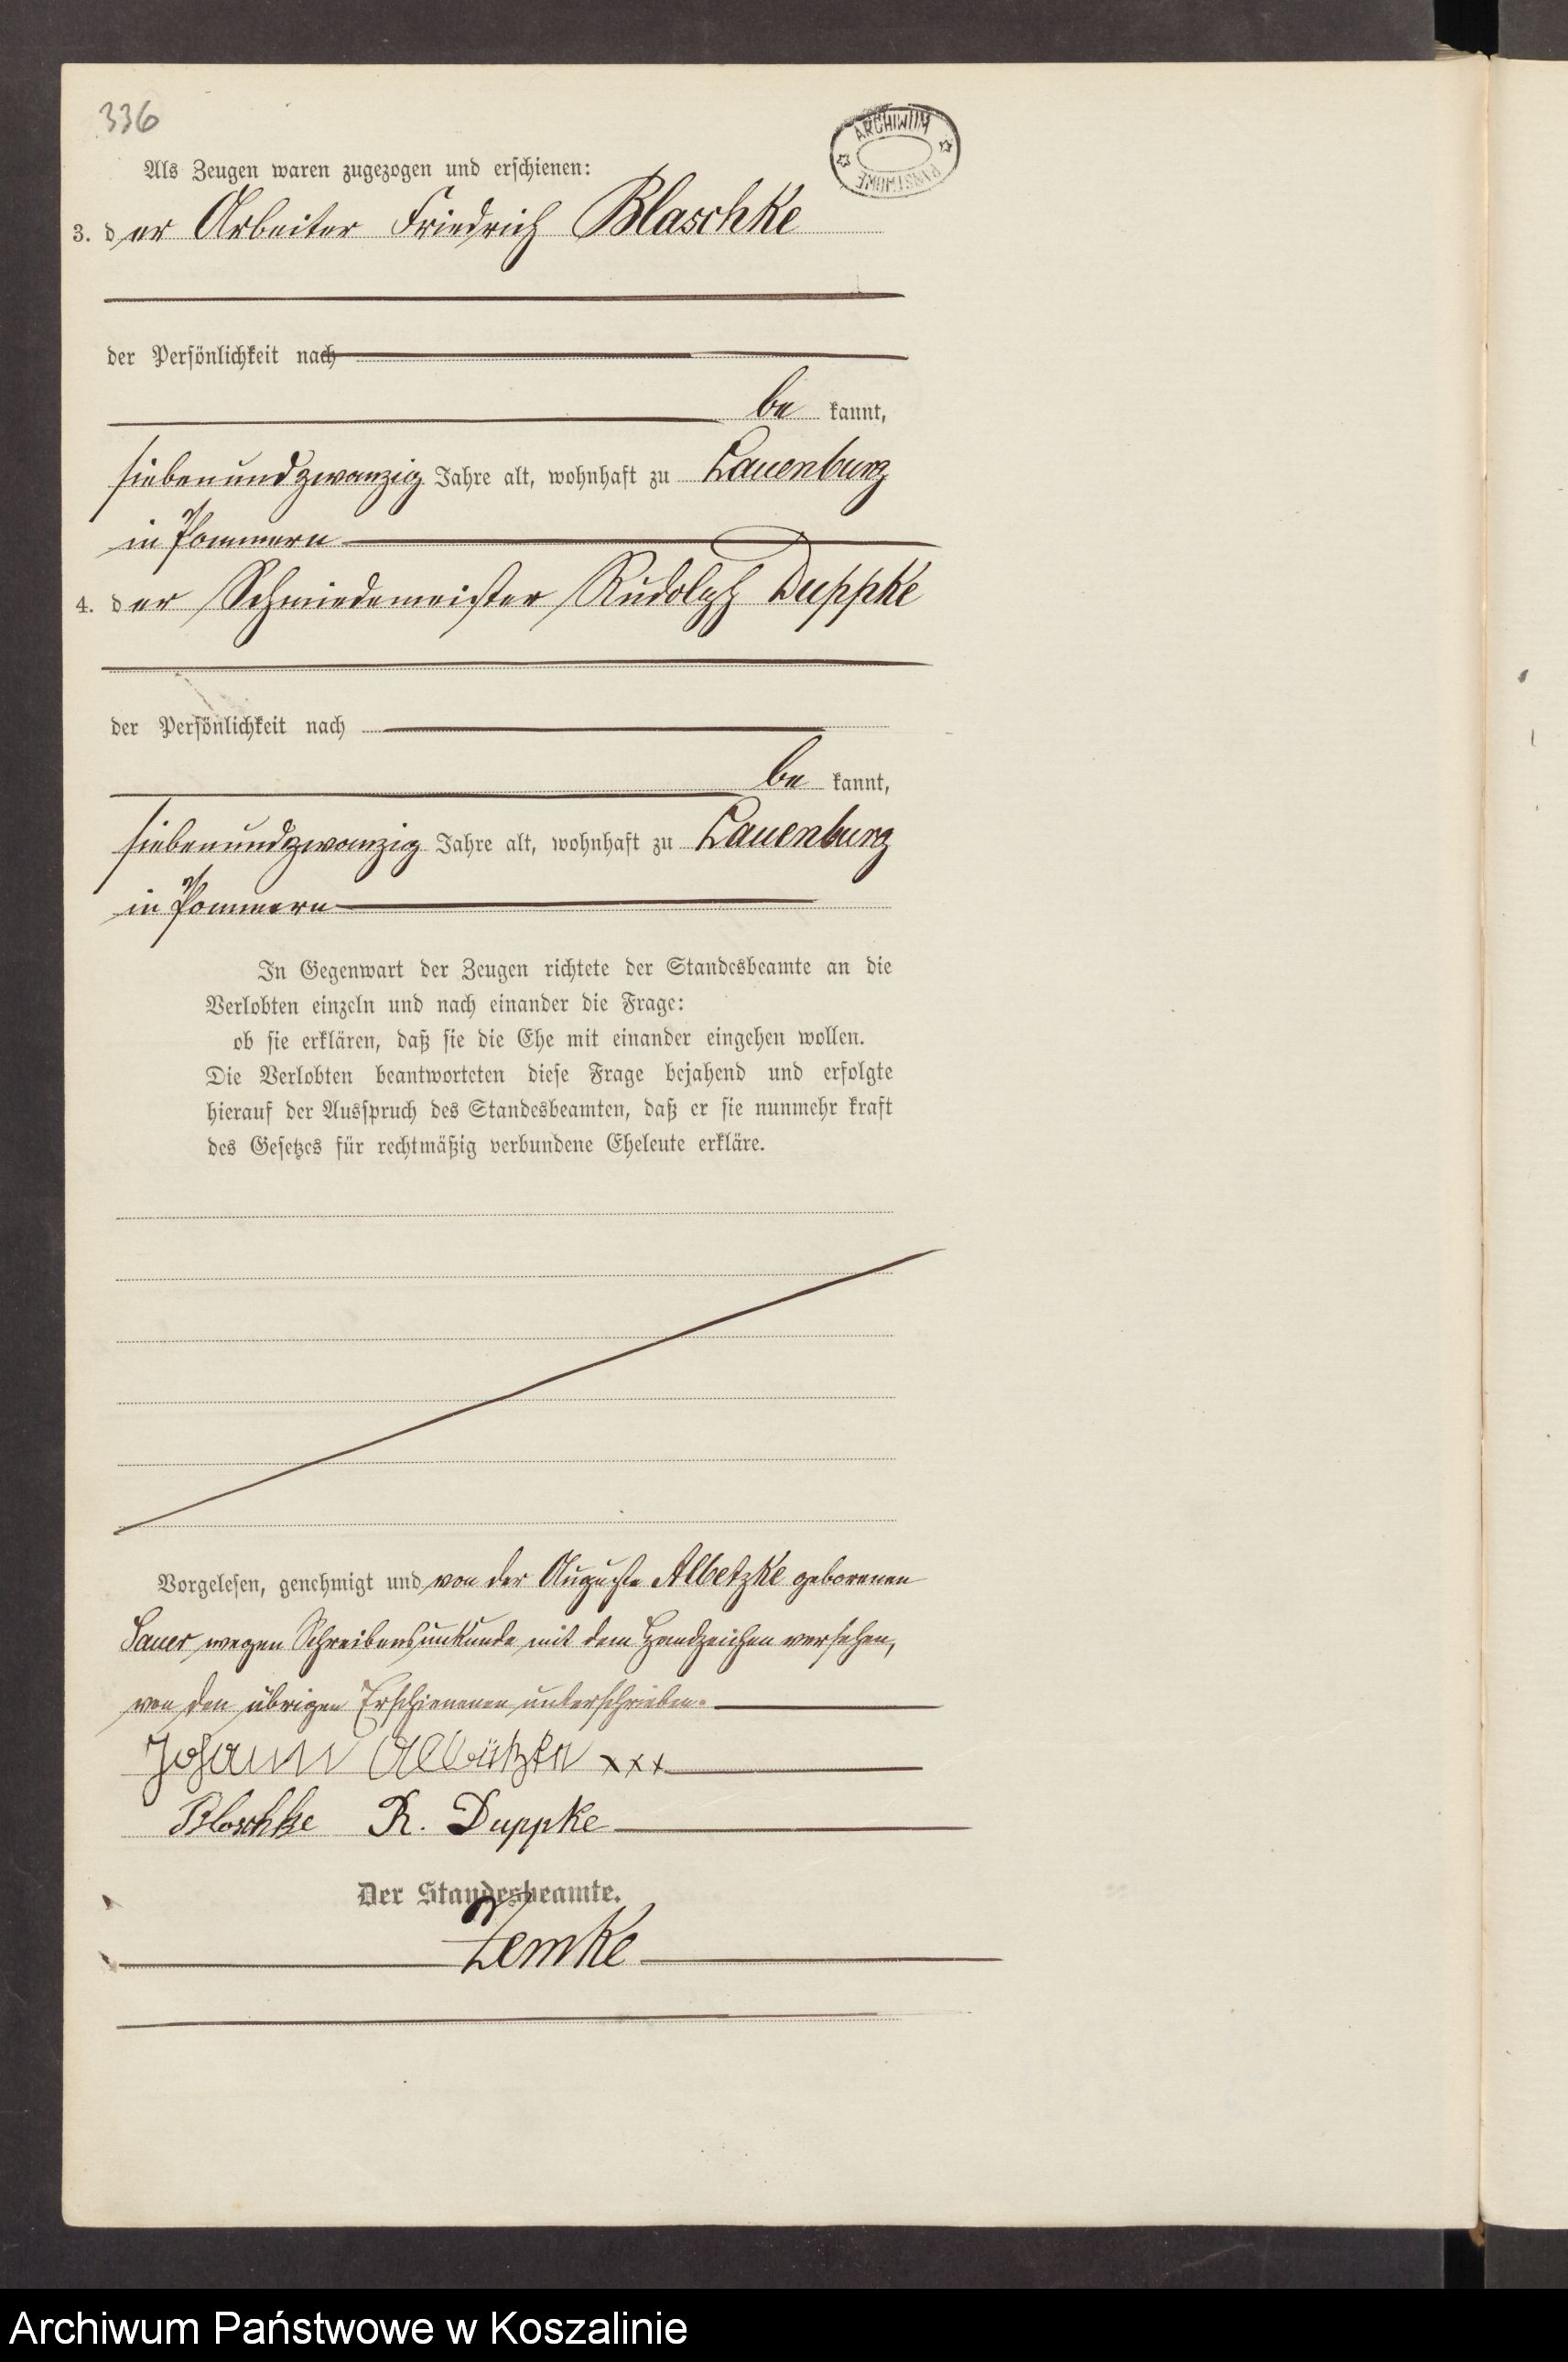 336
ARCHIWUM PAŃSTWOWE
Als Zeugen waren zugezogen und erschienen:
3. der Arbeiter Friedrich Blaschke
der Persönlichkeit nach
be kannt,
siebenundzwanzig Jahre alt, wohnhaft zu Lauenburg
in Pommern
4. der Schmiedemeister Rudolph Duppke
der Persönlichkeit nach
be kannt,
siebenundzwanzig Jahre alt, wohnhaft zu Lauenburg
in Pommern
In Gegenwart der Zeugen richtete der Standesbeamte an die
Verlobten einzeln und nach einander die Frage:
ob sie erklären, daß sie die Ehe mit einander eingehen wollen.
Die Verlobten beantworteten diese Frage bejahend und erfolgte
hierauf der Ausspruch des Standesbeamten, daß er sie nunmehr kraft
des Gesetzes für rechtmäßig verbundene Eheleute erkläre.
Vorgelesen, genehmigt und von der Auguste Albetzke geborenen
Sauer wegen Schreibensunkunde mit dem Handzeichen versehen,
von den übrigen Erschienenen unterschrieben.
Johann Albützke xxx
Blaschke R. Duppke
Der Standesbeamte.
Lemke
Archiwum Państwowe w Koszalinie